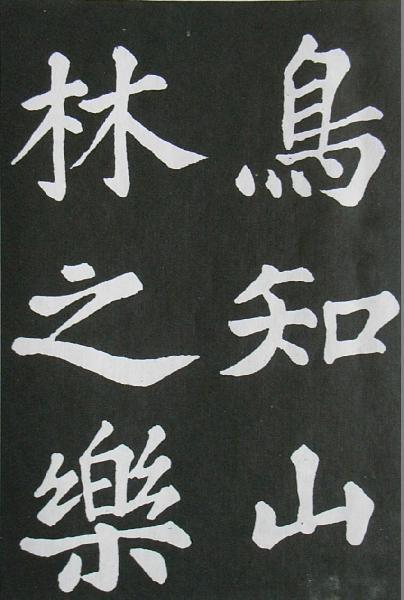 鳥知山
林之樂